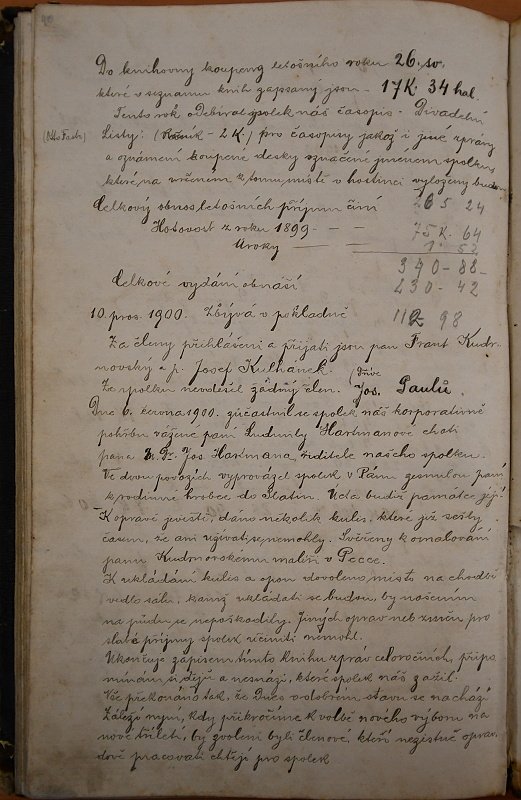 Do knihovny koupeny letošního roku 26. sv.
které v seznamu knih zapsány jsou - 17K 34 hal.
Tento rok odebíral spolek náš časopis - Divadelní
Listy: (Ročník - 2 K.) pro časopisy jakož i jiné zprávy
a oznámení koupené desky označené jmenem spolku
které, na určeném k tomu místě v hostinci vyloženy budou
Celkový obnos letošních příjmů činí 265 24
Hotovost z roku 1899 - - - 75K. 64
Úroky
340 - 88 -
Celkové vydání obnáší 230 - 42
10. pros. 1900. Zbývá v pokladně 112 98
Za členy přihlášeni a přijati jsou pan Frant Kudr-
novský a p. Josef Kulhánek.
Ze spolku nevolešil žádný člen. Jos. Paulů.
Dne 6. června 1900. zúčastnil se spolek náš korporativně
pohřbu vážené paní Ludmily Hartmanové choti
pana Jos. Hartmana, ředitele našeho spolku.
Ve dvou povozích vyprovázel spolek v Pánu zesnulou paní
k rodinné hrobce do Slatin. Úcta budiž památce její
K opravě jeviště, dáno několik kulis, které již sešly
časem, že ani užívati se nemohly. Svěřeny k omalování
panu Kudrnovskému malíři v Pecce.
K ukládání kulis a opon dovoleno, místo na chodbě
vedle sálu, kamž ukládati se budou, by nošením
na půdu se nepoškodily. Jiných oprav neb změn, pro
slabé příjmy spolek učiniti nemohl.
Ukončuje zápisem tímto knihu zpráv celoročních, připo-
mínám si děje a nesnází, které spolek náš zažil.
Vše překonáno tak, že Dnes v dobrém stavu se nachází
Záleží nyní, kdy přikročíme k volbě nového výboru na
nové tříletí, by zvoleni byli členové, kteří nezištně oprav-
dově pracovati chtějí pro spolek